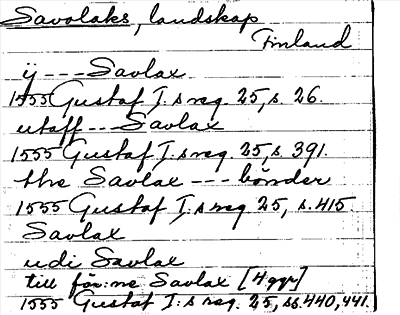 Savolaks, landskap
Finland
ÿ --- Savlax
1555 Gustaf I.s reg. 25, s. 26.
utaff --- Savlax
1555 Gustaf I.s reg. 25, s. 391.
the Savlax --- bönder
1555 Gustaf I.s reg. 25, s. 415.
Savlax
udi Savlax
till för:ne Savlax [4 ggr]
1555 Gustaf I.s reg. 25, ss. 440, 441.